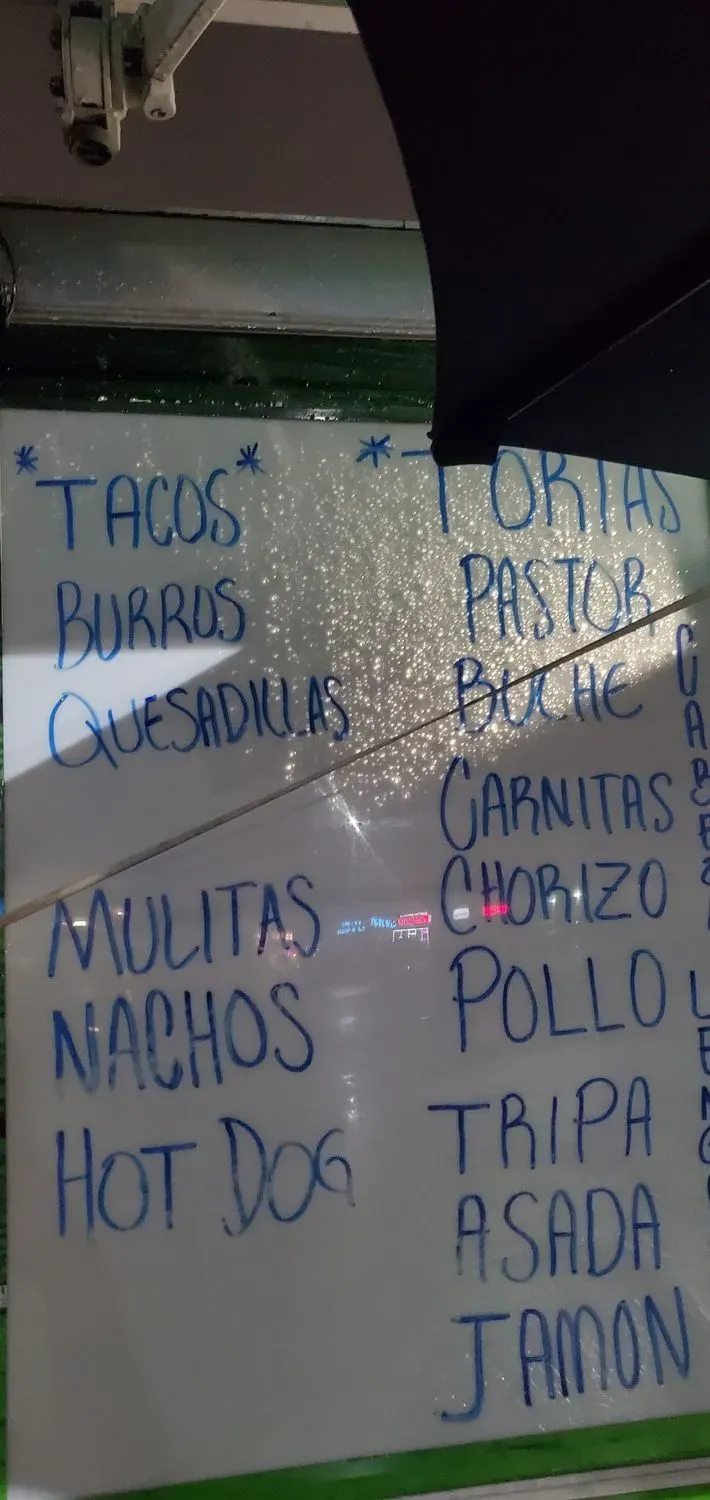 *TACOS*
BURROS
QUESADILLAS
MULITAS
NACHOS
HOT DOG
*TORTAS
PASTOR
BUCHE
CARNITAS
CHORIZO
POLLO
TRIPA
ASADA
JAMON